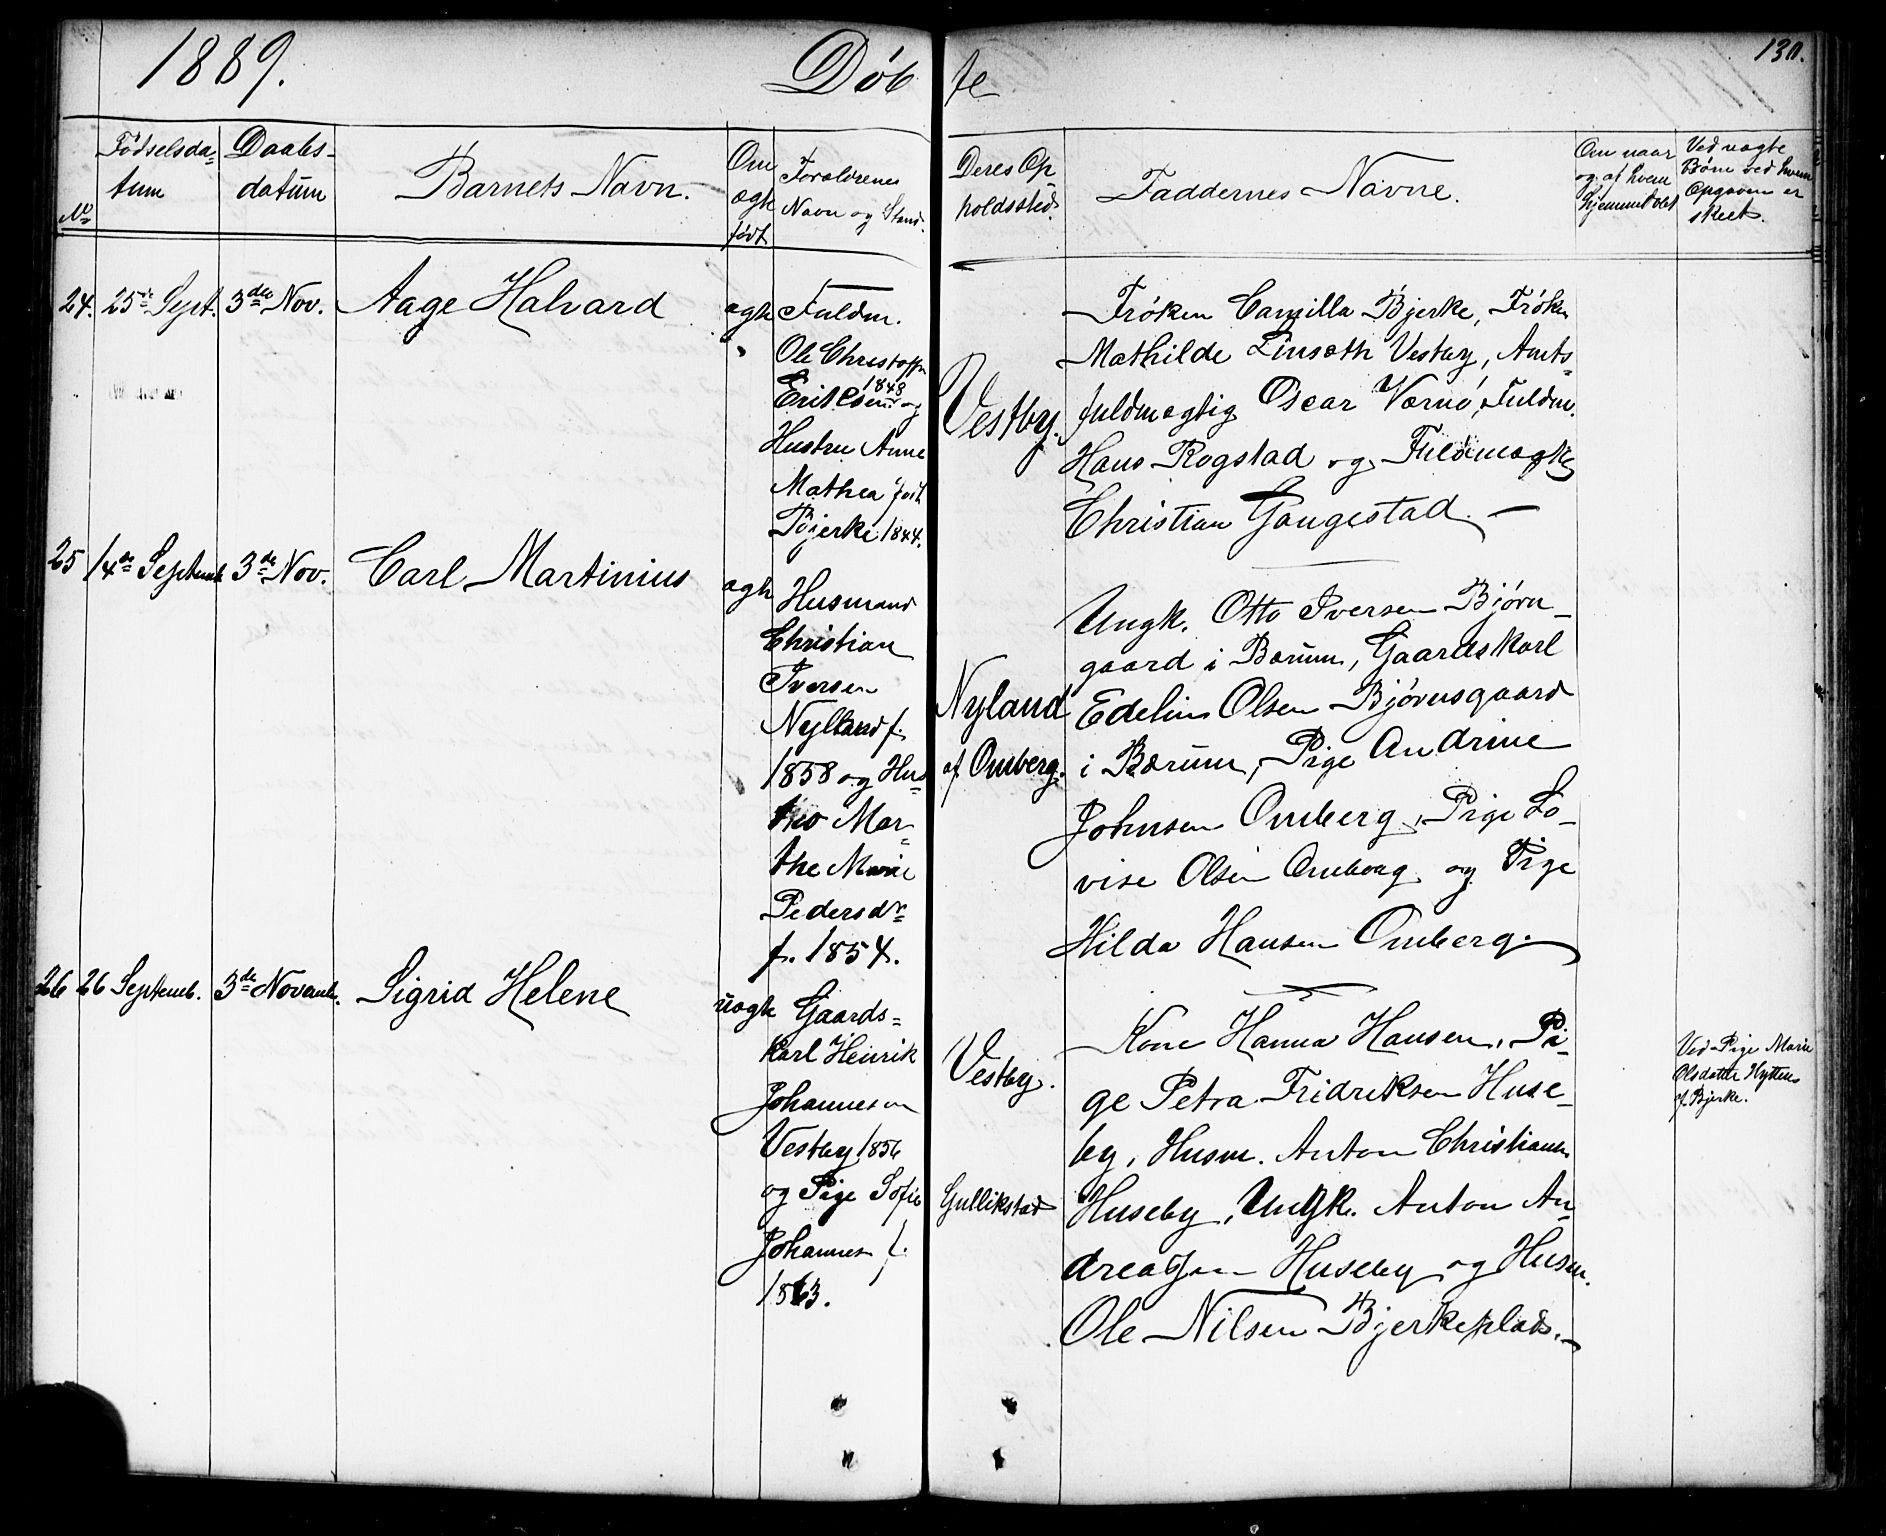 1889.
Døb
te
130.
No
Fødselsda=
tum
Daabs-
datum
Barnets Navn.
Om
ægte
født
Forældrenes
Navn og Stand.
Deres Op
holdssted.
Faddernes Navne.
Om naar
og af hvem
hjemmedøbt
Ved uægte
Børn ved hvem
Opgaven er
skeet.
24. 25de Sept. 3die Nov. Aage Halvard
ægte
Fuldm.
Ole Christoff
1848
Eriksen og
Hustru Anne
Mathea født
Bjerke 1844.
Vestby.
Frøken Camilla Bjerke, Frøken
Mathilde Linsæth Vestby, Amts=
fuldmægtig Oscar Værnø, Fuldm.
Hans Rogstad og Fuldmægtig
Christian Gangestad. —
25 14de Septemb 3die Nov. Carl Martinius
ægte
Husmand
Christian
Iversen
Nylland f.
1858 og Hus=
tro Mar=
the Marie
Pedersdr
f. 1854.
Nyland
af Omberg.
Ungk. Otto Iversen Bjørn-
gaard i Bærum, Gaardskarl
Edelius Olsen Bjørnsgaard
i Bærum, Pige Andrine
Johnsen Omberg, Pige Lo-
vise Olsen Omberg og Pige
Hilda Hansen Omberg.
26 26 Septemb. 3die Novemb. Sigrid Helene
uægte
Gaards=
karl Henrik
Johannesen
Vestby 1856
og Pige Sofie
Johannes f.
1863.
Vestby.
Gullikstad
Kone Hanna Hansen, Pi-
ge Petra Fridriksen Huse-
by, Husm. Anton Christiansen
Huseby, Ungk. Anton An
dreassen Huseby og Husm.
Ole Nilsen Bjerkeplads. —
Ved Pige Marie
Olsdatter Hytten
af Bjerke.